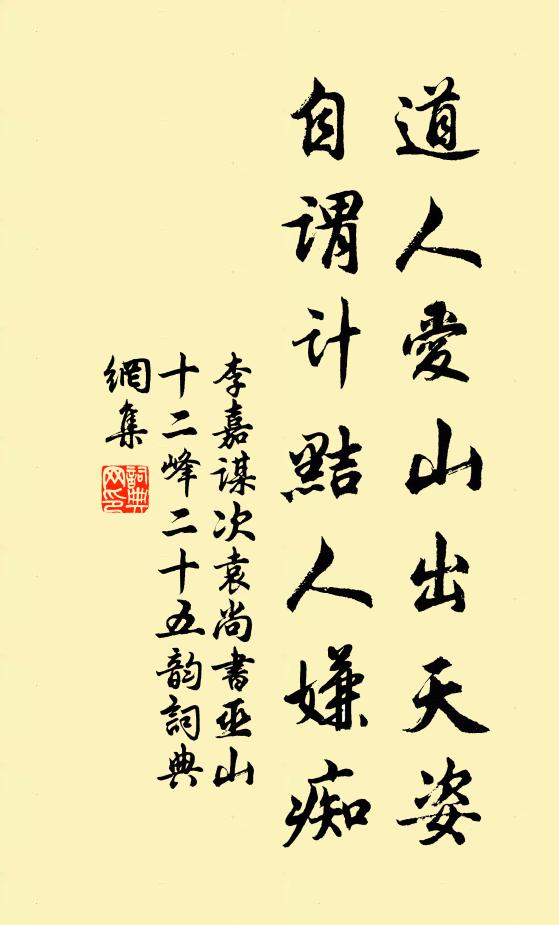 道人愛山出天姿
自谓计黠人嫌痴
李嘉谋次袁尚書巫山
十二峰二十五韵詞典
網集
詞典
网印